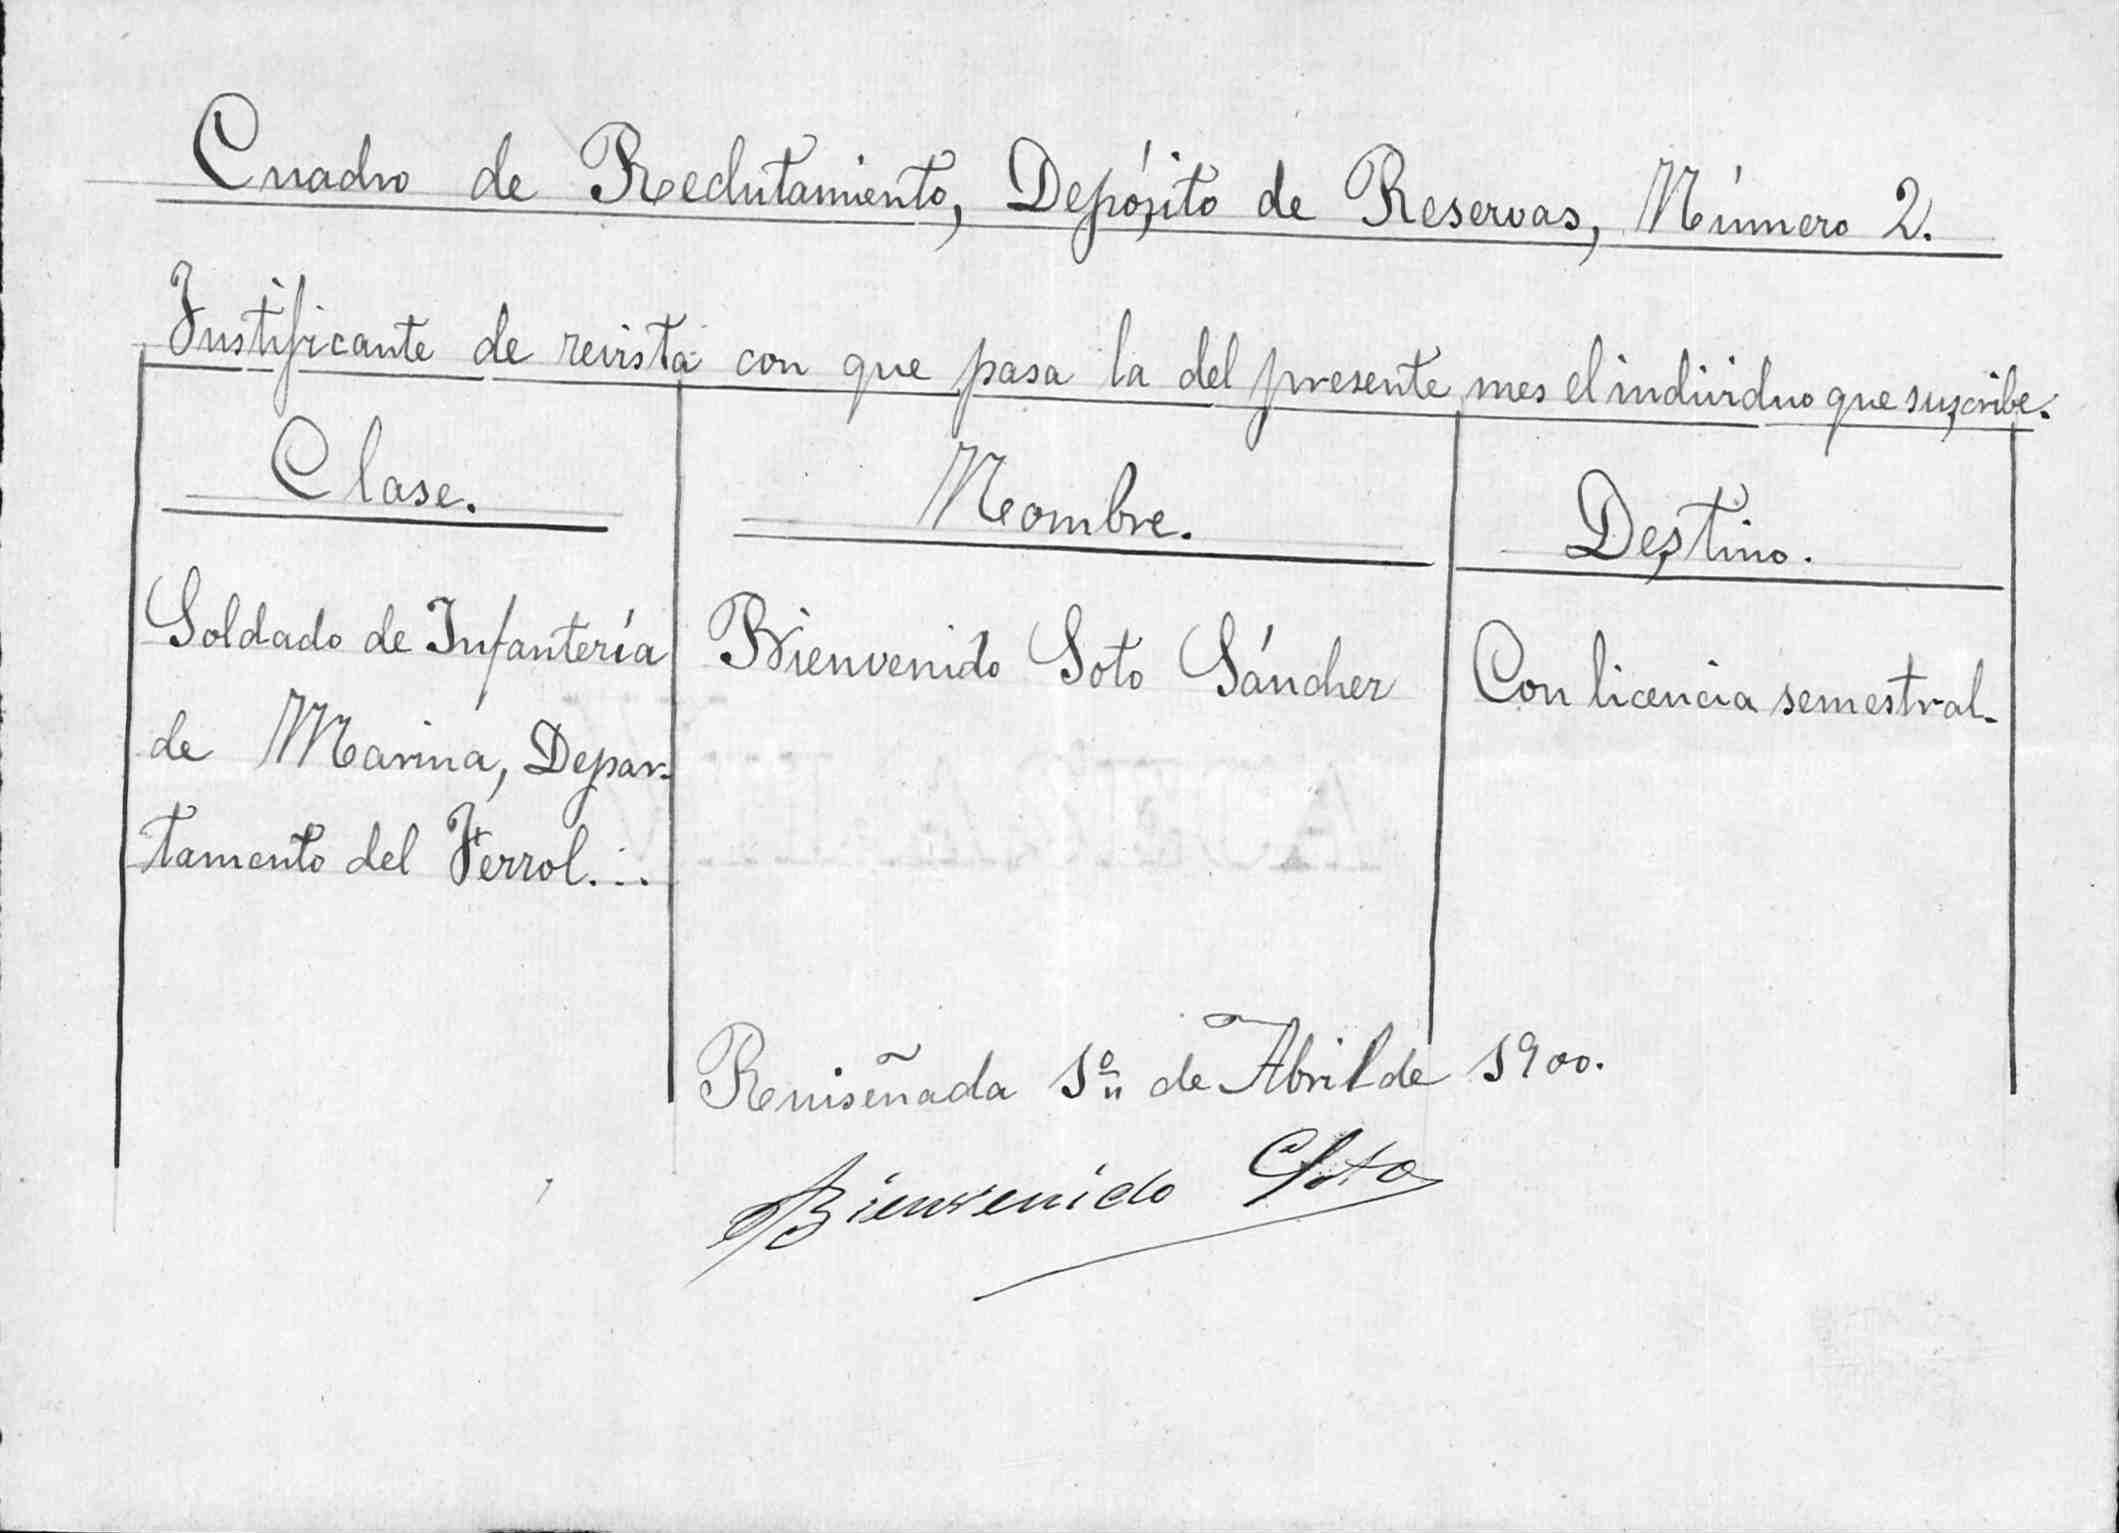 Cuadro de Reclutamiento, Depósito de Reservas, Número 2.
Justificante de revista con que pasa la del presente mes el individuo que suscribe.
Clase. Nombre. Destino.
Soldado de Infantería Bienvenido Soto Sánchez Con licencia semestral.
de Marina, Depar-
tamento del Ferrol...
Ruiseñada 1º de Abril de 1900.
Bienvenido Soto